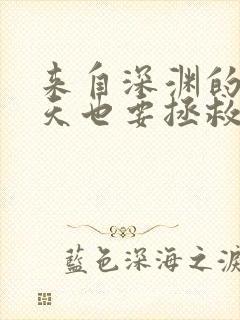 来自深渊的
天也要拯救
藍色深海之淚